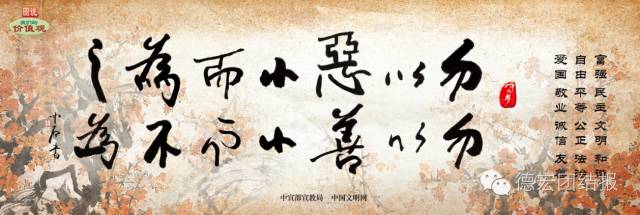 图说
我们的
价值观
勿以小恶而为之
勿以小善而不为
富强民主文明和
自由平等公正法
爱国敬业诚信友
中宣部宣教局 中国文明网
德宏团结报